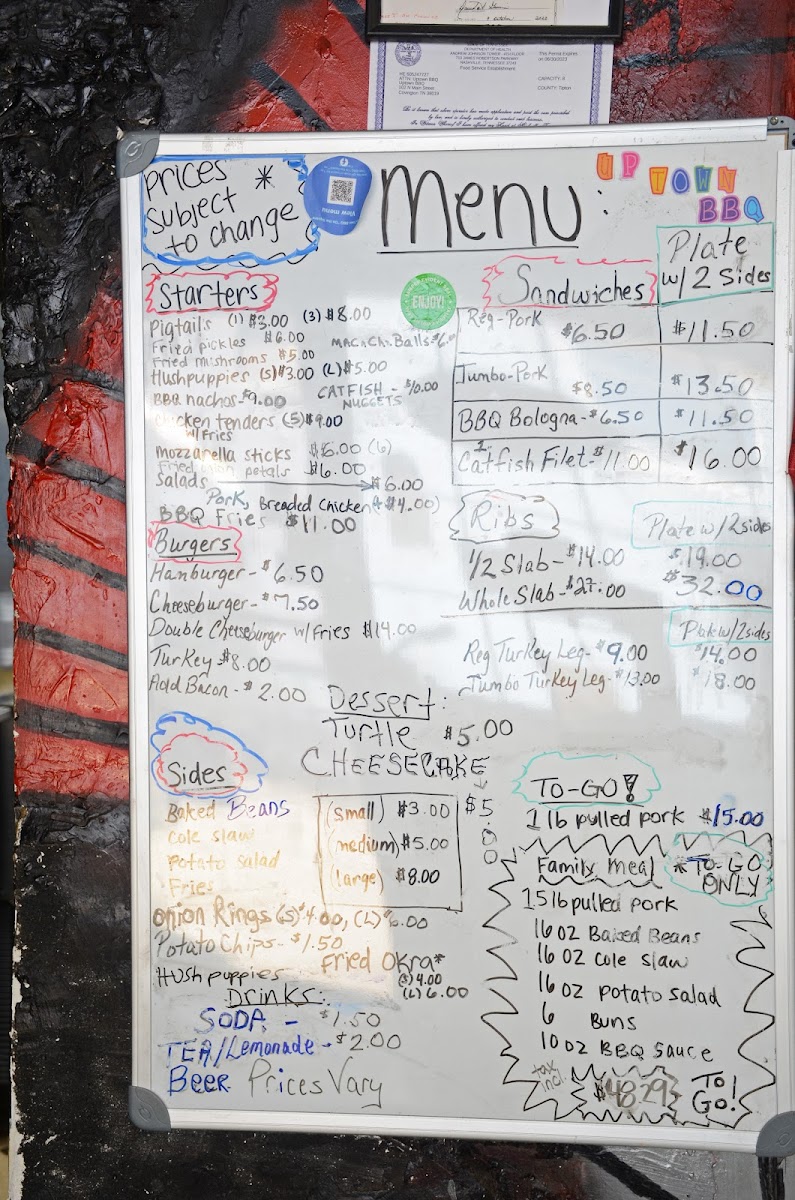 DEPARTMENT OF HEALTH
Uptown BBQ
Covington TN 38019
Food Service Establishment
This Permit Expires
on 06/30/2023
CAPACITY: 0
COUNTY: Tipton
prices *
subject
to change
View menu
Menu:
UP TOWN
BBQ
Starters
Pigtails (1) $3.00 (3) $8.00
Fried pickles $6.00
Mac n Ch. Balls $6.00
Fried mushrooms $5.00
Hushpuppies (S) $3.00 (L) $5.00
BBQ nachos - $9.00
CATFISH -
NUGGETS
Chicken tenders (5) $9.00
w/ Fries
mozzarella sticks $6.00 (6)
Fried onion petals $6.00
Salads $6.00
Pork, Breaded Chicken (+ $4.00)
BBQ Fries $11.00
ENJOY!
Sandwiches
Plate
w/ 2 Sides
Reg-Pork $6.50 $11.50
Jumbo-Pork $8.50 $13.50
BBQ Bologna - $6.50 $11.50
Catfish Filet - $11.00 $16.00
Ribs
Plate w/ 2 sides
1/2 Slab - $14.00 $19.00
Whole Slab - $27.00 $32.00
Plate w/ 2 sides
Reg Turkey Leg - $9.00 $14.00
Jumbo Turkey Leg - $13.00 $18.00
Burgers
Hamburger - $6.50
Cheeseburger - $7.50
Double Cheeseburger w/ Fries $14.00
Turkey - $8.00
Add Bacon - $2.00
Dessert:
Turtle $5.00
CHEESECAKE
$5.00
Sides
Baked Beans
Cole slaw
Potato Salad
Fries
(small) $3.00
(medium) $5.00
(large) $8.00
onion Rings (S) $4.00, (L) $6.00
Potato Chips - $1.50
Fried Okra*
(S) 4.00
(L) 6.00
Hush puppies
Drinks:
SODA - $1.50
TEA/Lemonade - $2.00
Beer Prices Vary
TO-GO!
1 lb pulled pork $15.00
Family meal
*TO-GO
ONLY
1.5 lb pulled pork
16 oz Baked Beans
16 oz Cole slaw
16 oz potato salad
6 Buns
10 oz BBQ Sauce
tax
incl.
$48.29
To
Go!